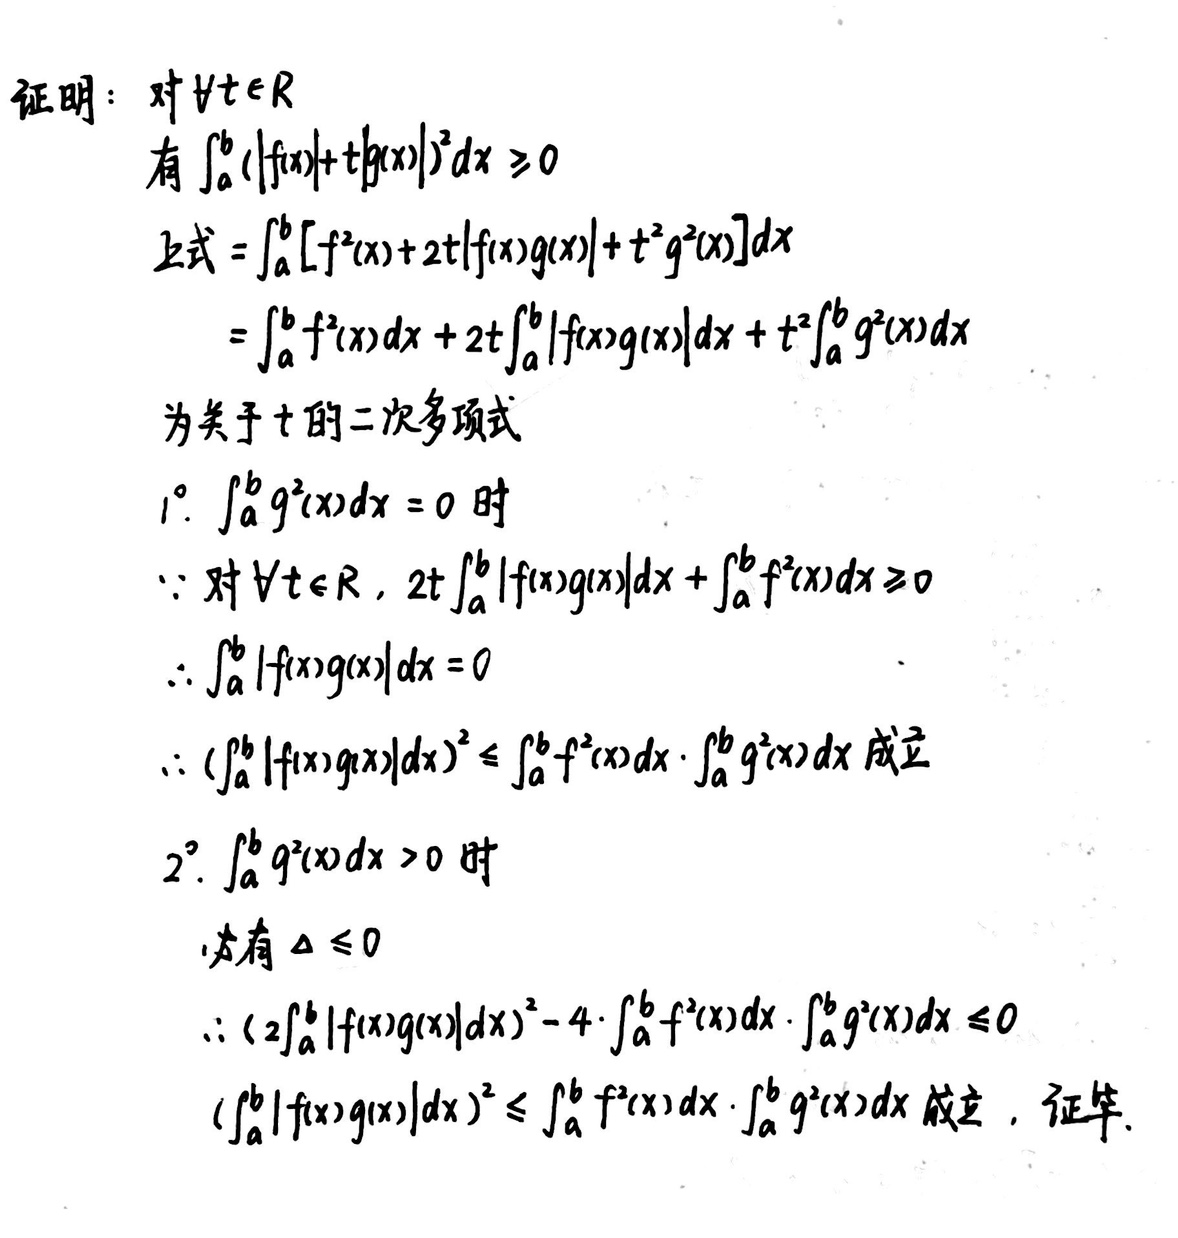 证明： 对 ∀t∈R
有 ∫_a^b (|f(x)|+t|g(x)|)²dx ≥0
上式 = ∫_a^b [f²(x)+2t|f(x)g(x)|+t²g²(x)]dx
= ∫_a^b f²(x)dx + 2t∫_a^b |f(x)g(x)|dx + t²∫_a^b g²(x)dx
为关于 t 的二次多项式
1°. ∫_a^b g²(x)dx = 0 时
∵ 对 ∀t∈R, 2t∫_a^b |f(x)g(x)|dx + ∫_a^b f²(x)dx ≥0
∴ ∫_a^b |f(x)g(x)|dx = 0
∴ (∫_a^b |f(x)g(x)|dx)² ≤ ∫_a^b f²(x)dx · ∫_a^b g²(x)dx 成立
2°. ∫_a^b g²(x)dx > 0 时
必有 Δ ≤0
∴ (2∫_a^b |f(x)g(x)|dx)² - 4·∫_a^b f²(x)dx · ∫_a^b g²(x)dx ≤0
(∫_a^b |f(x)g(x)|dx)² ≤ ∫_a^b f²(x)dx · ∫_a^b g²(x)dx 成立, 证毕.